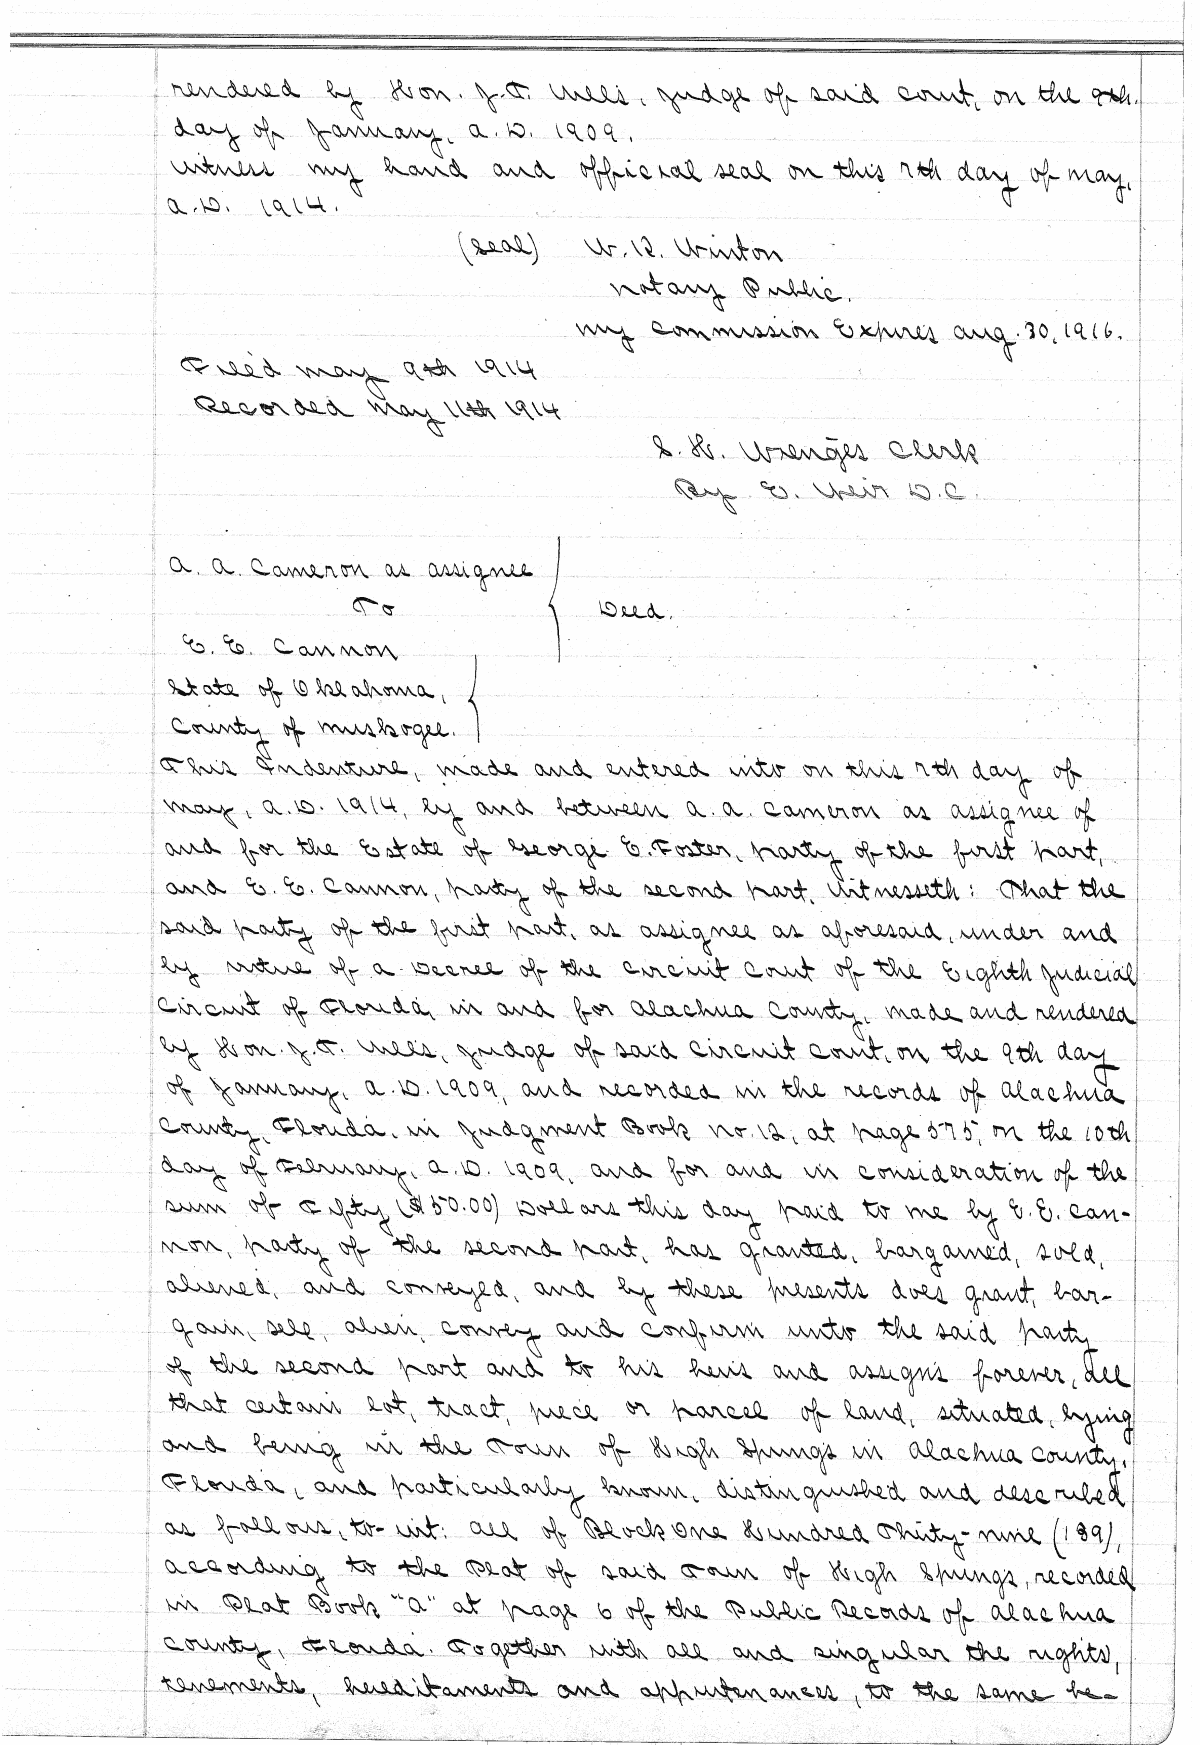 rendered by Hon. J.T. Wills, Judge of said court, on the 9th.
day of January, A.D. 1909.
Witness my hand and official seal on this 7th day of May,
A.D. 1914.
(Seal) W.R. Winton
Notary Public.
My Commission Expires Aug. 30, 1916.
Filed May 9th 1914
Recorded May 11th 1914
S. H. Wienges Clerk
By E. Weir D.C.
A. A. Cameron as assignee
To
Deed.
E. E. Cannon
State of Oklahoma,
County of Muskogee.
This Indenture, made and entered into on this 7th day of
May, A.D. 1914, by and between A. A. Cameron as assignee of
and for the Estate of George E. Foster, party of the first part,
and E. E. Cannon, party of the second part, Witnesseth: That the
said party of the first part, as assignee as aforesaid, under and
by virtue of a Decree of the Circuit Court of the Eighth Judicial
Circuit of Florida, in and for Alachua County, made and rendered
by Hon. J.T. Wills, Judge of said Circuit Court, on the 9th day
of January, A.D. 1909, and recorded in the records of Alachua
County, Florida, in Judgment Book No. 12, at page 575, on the 10th
day of February, A.D. 1909, and for and in consideration of the
sum of Fifty ($50.00) Dollars this day paid to me by E.E. Can-
non, party of the second part, has granted, bargained, sold,
aliened, and conveyed, and by these presents does grant, bar-
gain, sell, alien, convey and confirm unto the said party
of the second part and to his heirs and assigns forever, all
that certain lot, tract, piece or parcel of land, situated, lying
and being in the Town of High Springs in Alachua County,
Florida, and particularly known, distinguished and described
as follows, to-wit: All of Block One Hundred Thirty-nine (139),
according to the Plat of said Town of High Springs, recorded
in Plat Book "A" at page 6 of the Public Records of Alachua
County, Florida. Together with all and singular the rights,
tenements, hereditaments and appurtenances, to the same be-